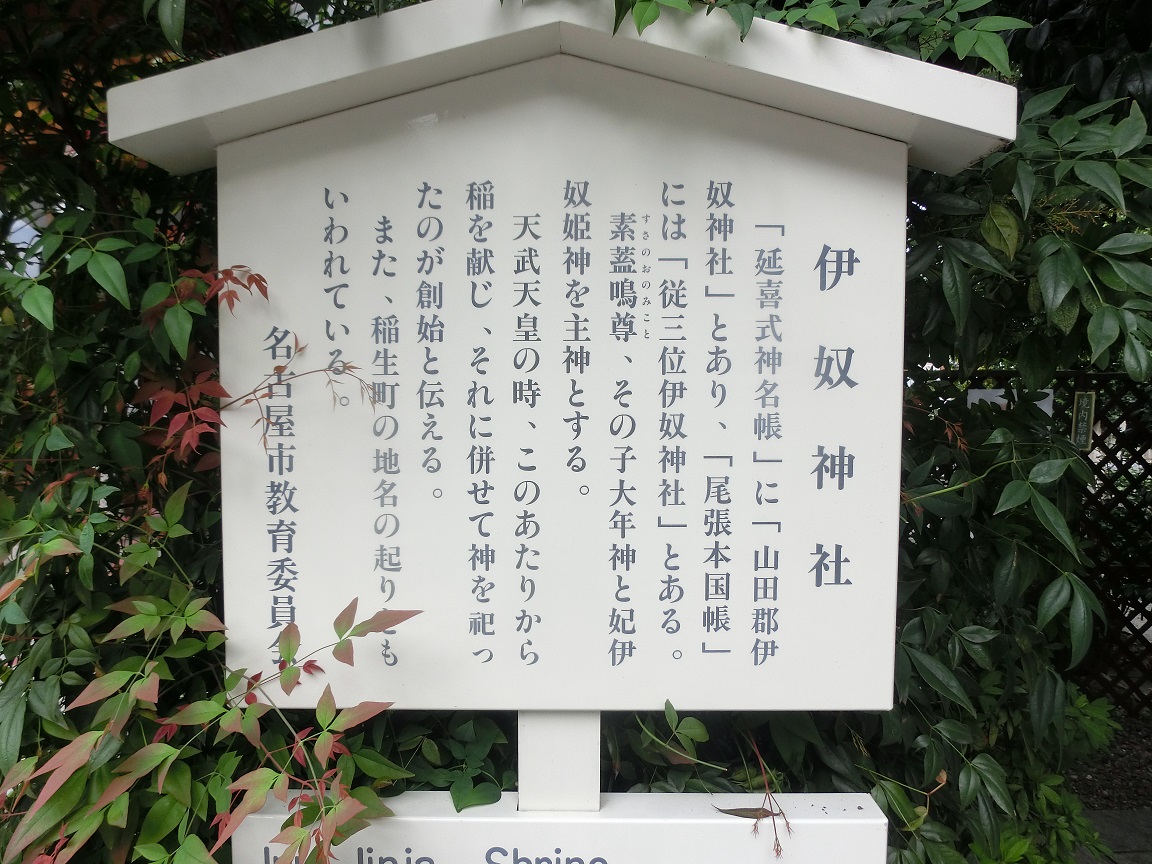 伊奴神社
「延喜式神名帳」に「山田郡伊
奴神社」とあり、「尾張本国帳」
には「従三位伊奴神社」とある。
素蓋鳴尊、その子大年神と妃伊
すさのおのみこと
奴姫神を主神とする。
天武天皇の時、このあたりから
稲を献じ、それに併せて神を祀っ
たのが創始と伝える。
また、稲生町の地名の起りとも
いわれている。
名古屋市教育委員会
Jinja Shrine
境内禁煙